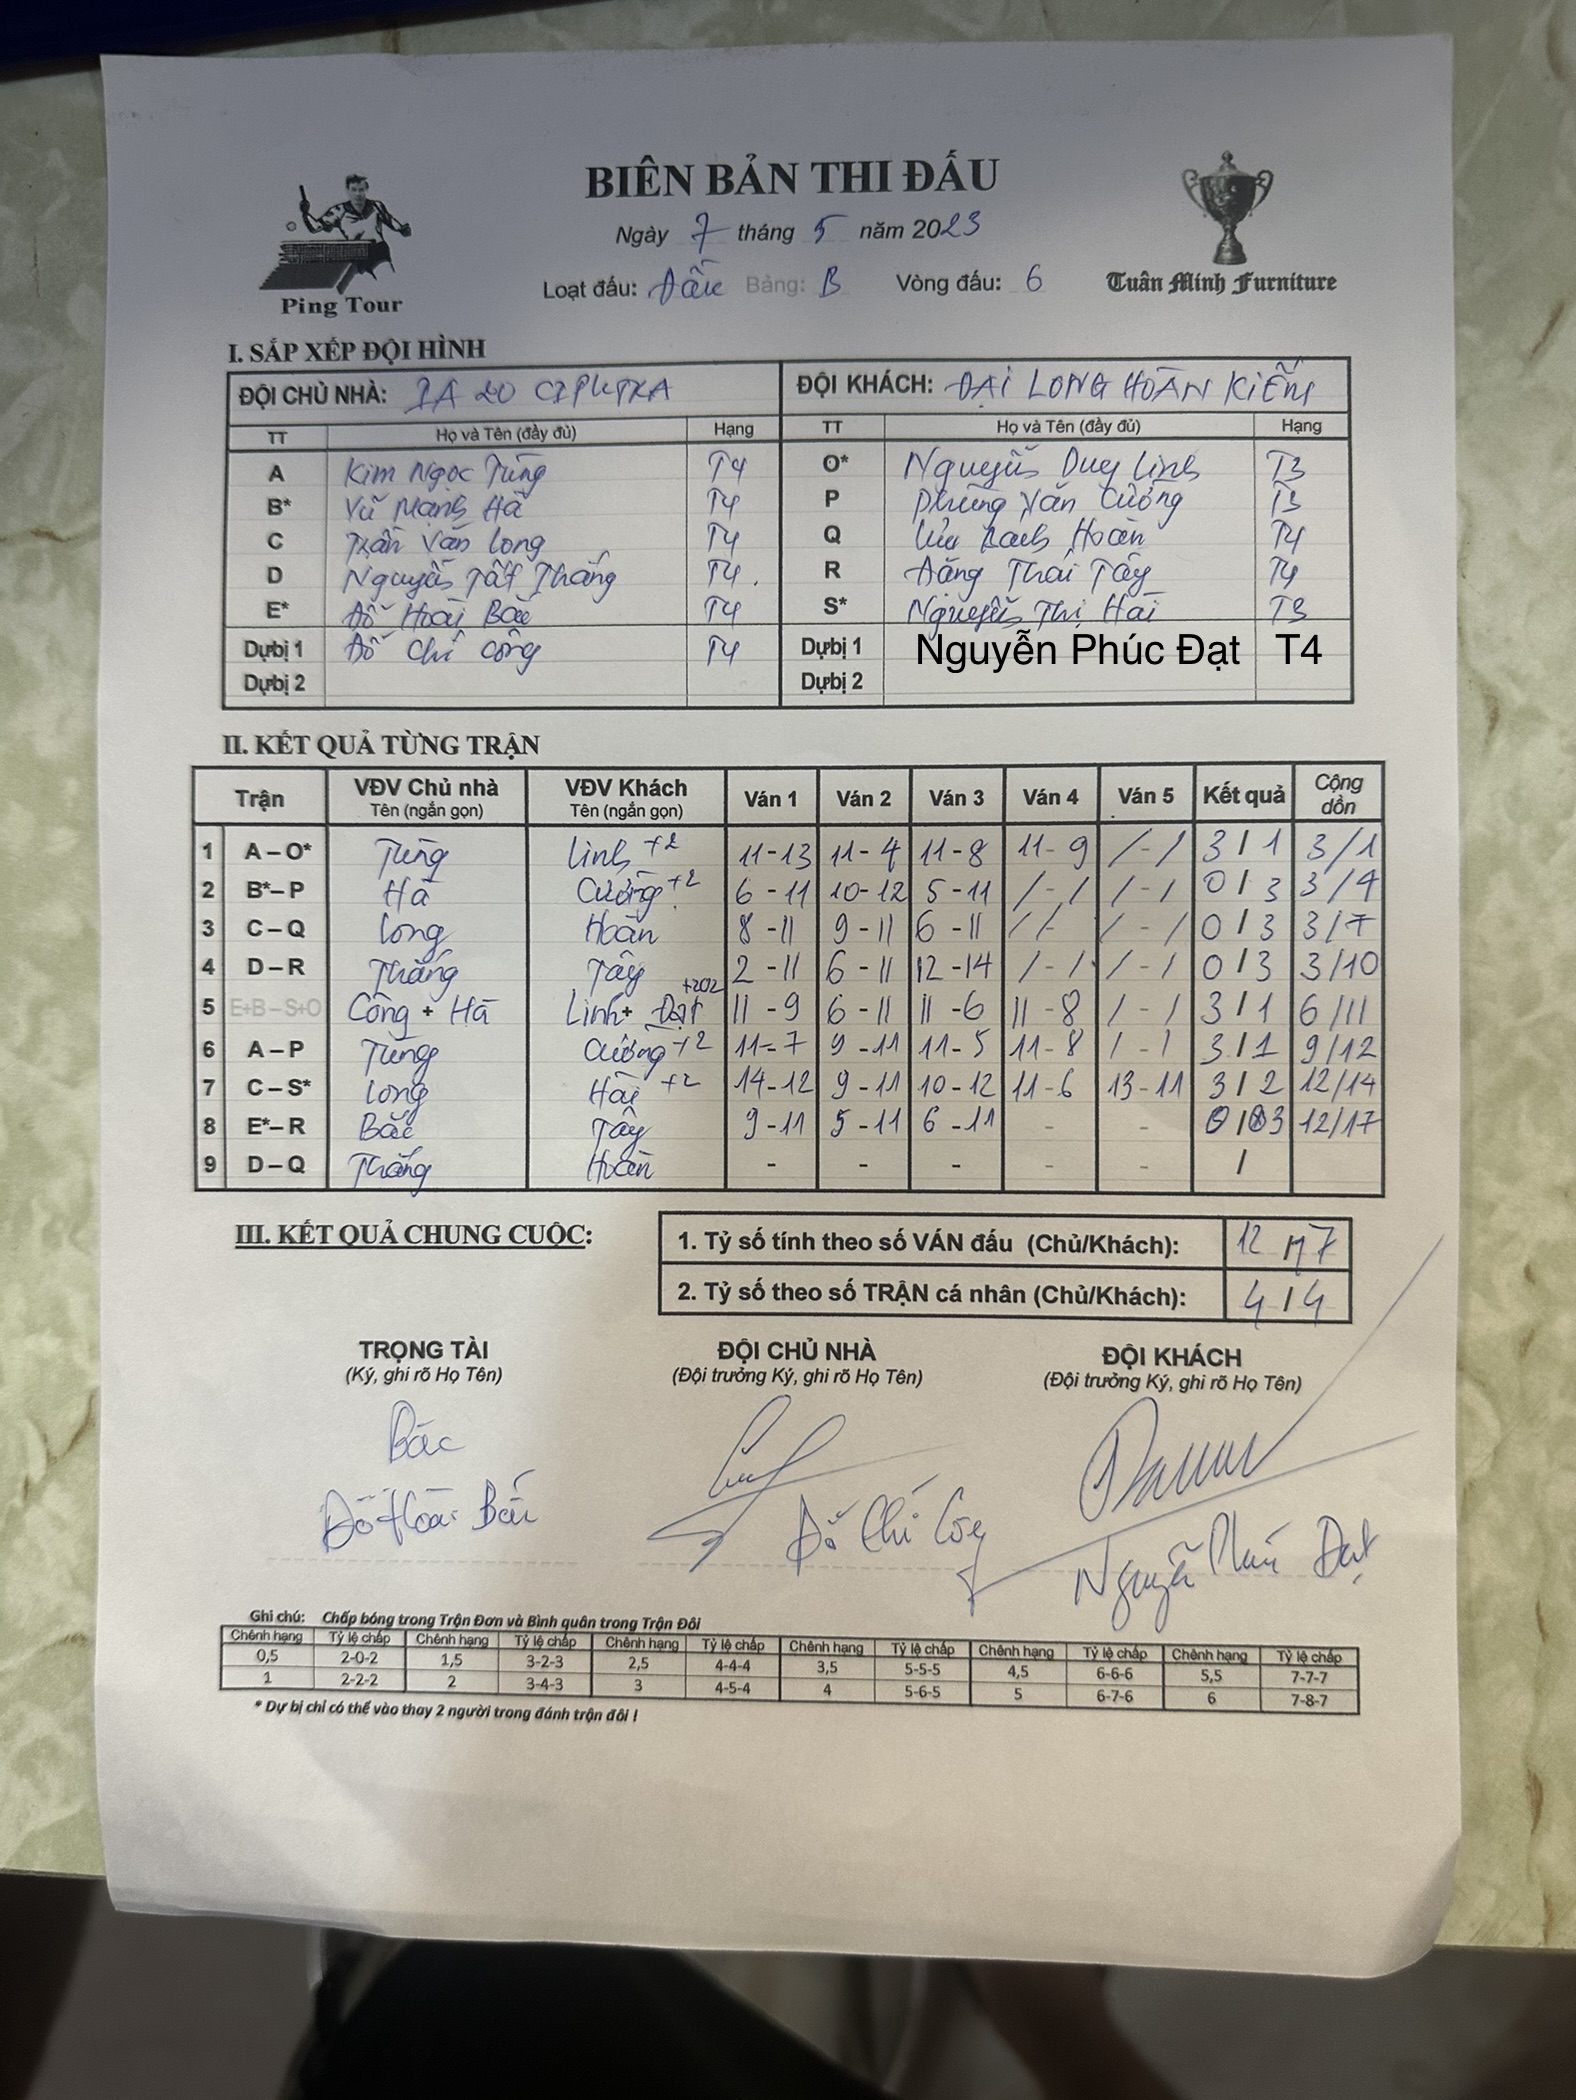 BIÊN BẢN THI ĐẤU
Ngày 7 tháng 5 năm 2023
Loạt đấu: Đấu Bảng: B Vòng đấu: 6
Ping Tour
Tuân Minh Furniture
I. SẮP XẾP ĐỘI HÌNH
ĐỘI CHỦ NHÀ: IA 20 CIPUTRA ĐỘI KHÁCH: ĐẠI LONG HOÀN KIẾM
TT Họ và Tên (đầy đủ) Hạng TT Họ và Tên (đầy đủ) Hạng
A Kim Ngọc Tùng T4 O* Nguyễn Duy Linh T3
B* Vũ Mạnh Hà T4 P Phùng Văn Cường T3
C Trần Văn Long T4 Q Lưu Hoàn T4
D Nguyễn Tất Thắng T4 R Đặng Thái Tây T4
E* Đỗ Hoài Bắc T4 S* Nguyễn Thị Hải T3
Dựbị 1 Đỗ Chí Công T4 Dựbị 1 Nguyễn Phúc Đạt T4
Dựbị 2 Dựbị 2
II. KẾT QUẢ TỪNG TRẬN
Trận VĐV Chủ nhà Tên (ngắn gọn) VĐV Khách Tên (ngắn gọn) Ván 1 Ván 2 Ván 3 Ván 4 Ván 5 Kết quả Cộng dồn
1 A – O* Tùng Linh +2 11-13 11-4 11-8 11-9 /-/ 3/1 3/1
2 B*– P Hà Cường +2 6-11 10-12 5-11 /-/ /-/ 0/3 3/4
3 C – Q Long Hoàn 8-11 9-11 6-11 /-/ /-/ 0/3 3/7
4 D – R Thắng Tây 2-11 6-11 12-14 /-/ /-/ 0/3 3/10
5 E+B – S+O Công + Hà Linh + Đạt +202 11-9 6-11 11-6 11-8 /-/ 3/1 6/11
6 A – P Tùng Cường +2 11-7 9-11 11-5 11-8 /-/ 3/1 9/12
7 C – S* Long Hải +2 14-12 9-11 10-12 11-6 13-11 3/2 12/14
8 E*– R Bắc Tây 9-11 5-11 6-11 - - 0/3 12/17
9 D – Q Thắng Hoàn - - - - - /
III. KẾT QUẢ CHUNG CUỘC:
1. Tỷ số tính theo số VÁN đấu (Chủ/Khách): 12 / 17
2. Tỷ số theo số TRẬN cá nhân (Chủ/Khách): 4 / 4
TRỌNG TÀI ĐỘI CHỦ NHÀ ĐỘI KHÁCH
(Ký, ghi rõ Họ Tên) (Đội trưởng Ký, ghi rõ Họ Tên) (Đội trưởng Ký, ghi rõ Họ Tên)
Bắc
Đỗ Hoài Bắc Đỗ Chí Công Nguyễn Phúc Đạt
Ghi chú: Chấp bóng trong Trận Đơn và Bình quân trong Trận Đôi
Chênh hạng Tỷ lệ chấp Chênh hạng Tỷ lệ chấp Chênh hạng Tỷ lệ chấp Chênh hạng Tỷ lệ chấp Chênh hạng Tỷ lệ chấp Chênh hạng Tỷ lệ chấp
0,5 2-0-2 1,5 3-2-3 2,5 4-4-4 3,5 5-5-5 4,5 6-6-6 5,5 7-7-7
1 2-2-2 2 3-4-3 3 4-5-4 4 5-6-5 5 6-7-6 6 7-8-7
* Dự bị chỉ có thể vào thay 2 người trong đánh trận đôi !